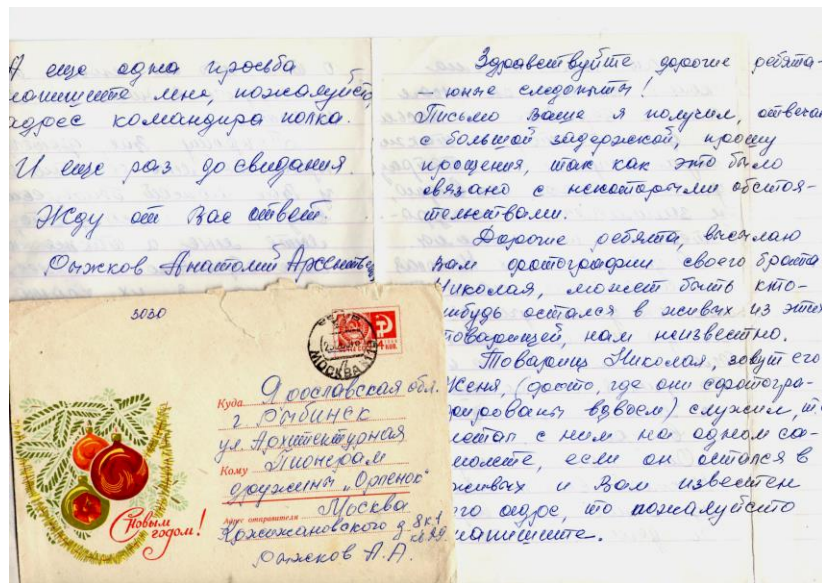 А еще одна просьба
напишите мне, пожалуйста,
адрес командира полка.
И еще раз до свидания.
Жду от Вас ответ.
Рыжков Анатолий
Здравствуйте дорогие ребята-
- юные следопыты!
Письмо Ваше я получил, отвечаю
с большой задержкой, прошу
прощения, так как это было
связано с некоторыми обстоя-
тельствами.
Дорогие ребята, высылаю
Вам фотографии своего брата
Николая, может быть кто-
нибудь остался в живых из этих
товарищей, нам неизвестно.
Товарищ Николая, зовут его
Женя, (фото, где они сфотогра-
фированы вдвоем) служил,
летал с ним на одном са-
молете, если он остался в
живых и Вам известен
его адрес, то пожалуйсто
напишите.
3030
МОСКВА
С Новым
годом!
Куда Ярославская обл.
г. Рыбинск
ул. Архитектурная
Кому Пионерам
дружины „Орленок"
Адрес отправителя Москва
Кржижановского д 8 к.1
Рыжков А.А.